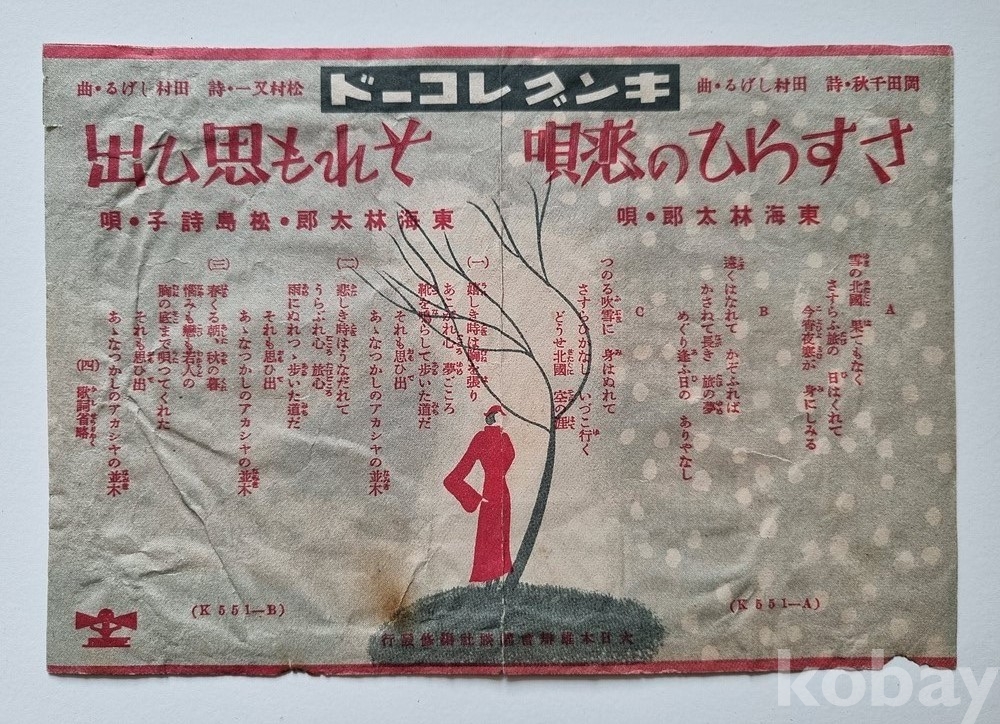 キングレコード
岡田千秋・詩 田村しげる・曲
さすらひの恋唄
東海林太郎・唄
A
雪の北國 果てもなく
さすらふ旅の 日はくれて
今宵夜寒が 身にしみる
B
遠くはなれて かぞふれば
かさねて長き 旅の夢
めぐり逢ふ日の ありやなし
C
つのる吹雪に 身はぬれて
さすらひかなし いづこ行く
どうせ北國 空の涯
(K551—A)
松村又一・詩 田村しげる・曲
それも思ひ出
東海林太郎・松島詩子・唄
(一)
嬉しき時は胸を張り
あこがれ心 夢ごころ
靴を鳴らして歩いた道だ
それも思ひ出
あゝなつかしのアカシヤの並木
(二)
悲しき時はうなだれて
うらぶれ心 旅心
雨にぬれつゝ歩いた道だ
それも思ひ出
あゝなつかしのアカシヤの並木
(三)
春くる朝、秋の暮
惱みも戀も若人の
胸の底まで唄つてくれた
それも思ひ出
あゝなつかしのアカシヤの並木
(四) 歌詞省略
(K551—B)
大日本雄辯會講談社編修發行
kobay